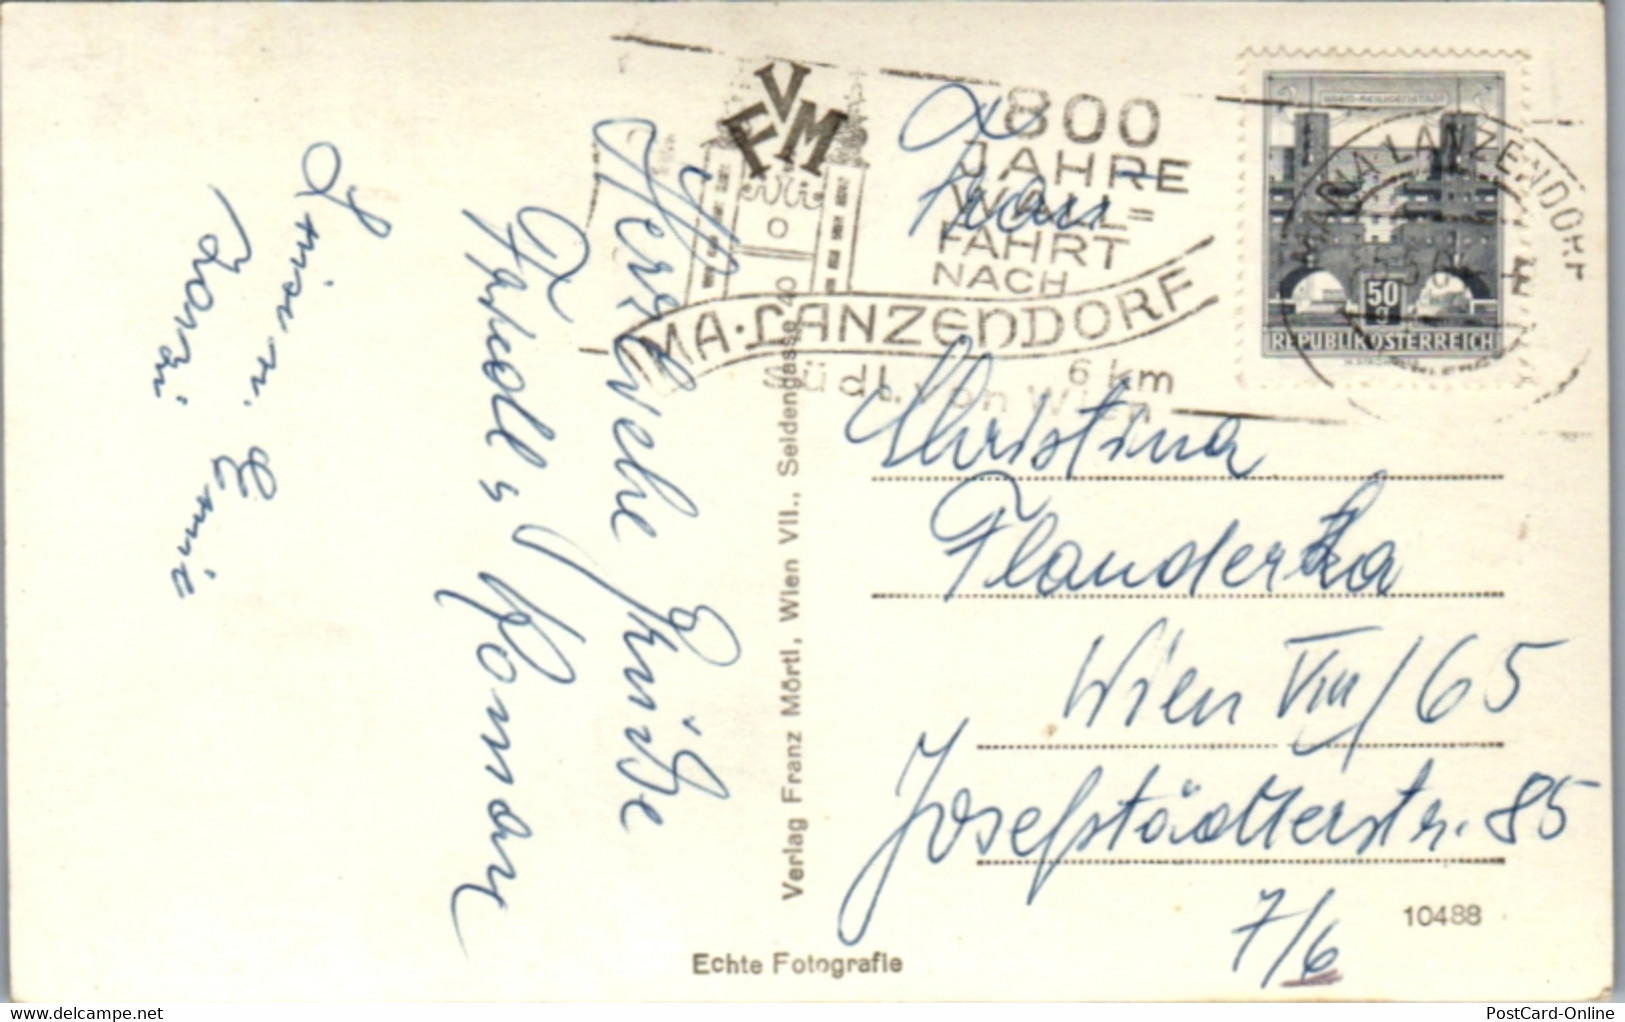 FVM
800
JAHRE
WALL=
FAHRT
NACH
MA. LANZENDORF
6 km
südl. von Wien
MARIA LANZENDORF
50
g
REPUBLIK ÖSTERREICH
Frau
Christina
Flanderka
Wien VIII/65
Josefstädterstr. 85
7/6
10488
Herzliche Grüße
Friedl u. Roman
Verlag Franz Mörtl, Wien VII., Seidengasse
Echte Fotografie
delcampe.net
PostCard-Online